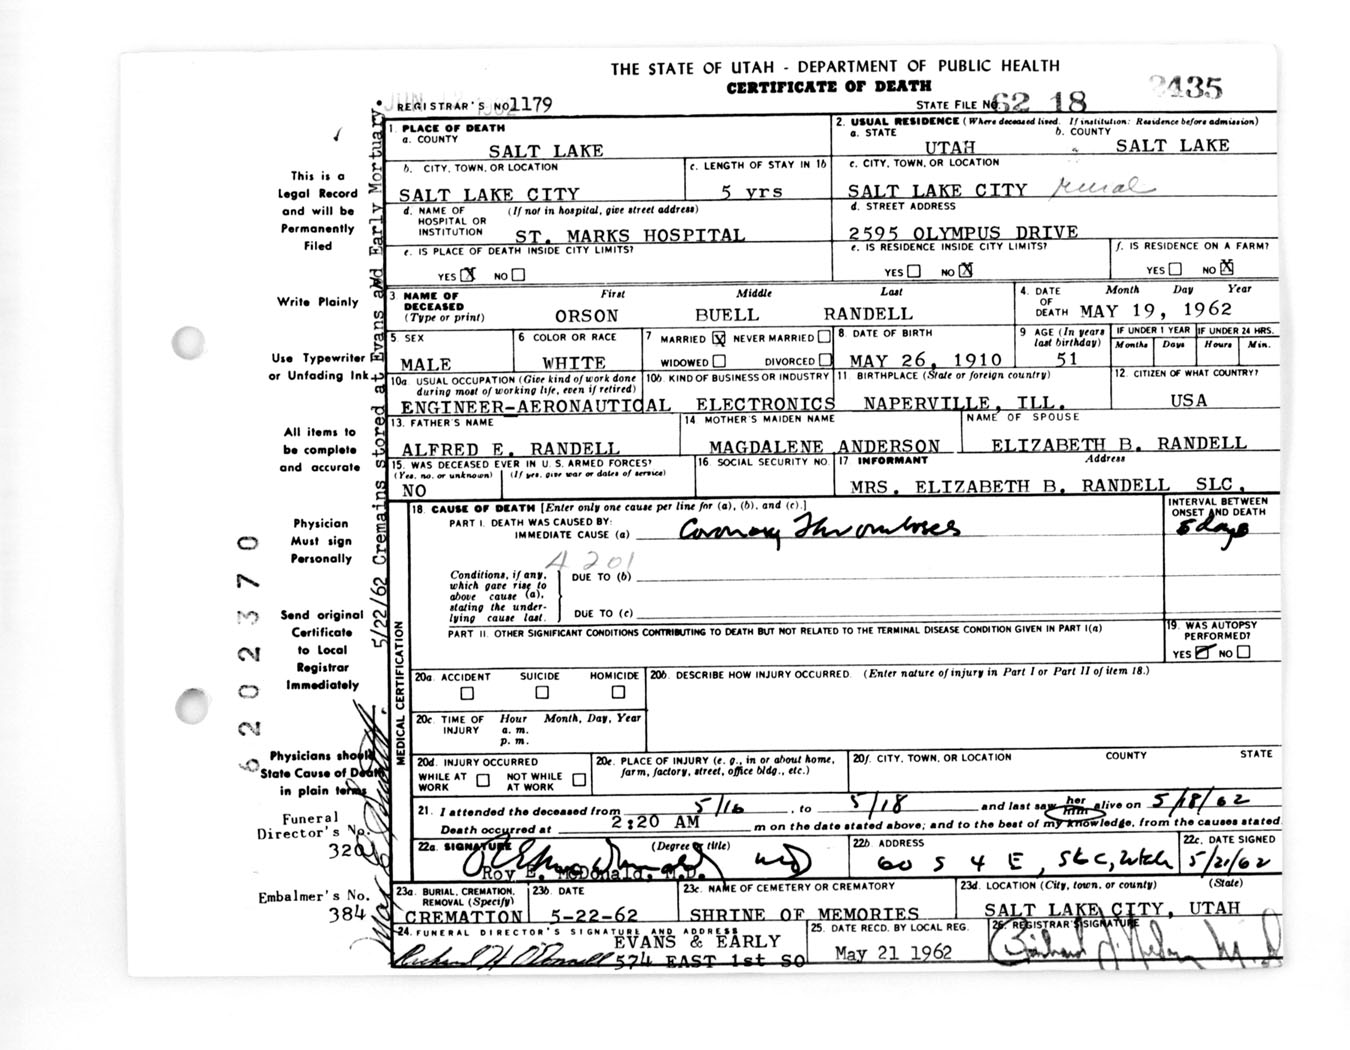 THE STATE OF UTAH - DEPARTMENT OF PUBLIC HEALTH
CERTIFICATE OF DEATH
2435
REGISTRAR'S NO. 1179
STATE FILE NO. 62 18
1. PLACE OF DEATH
a. COUNTY
SALT LAKE
2. USUAL RESIDENCE (Where deceased lived. If institution: Residence before admission)
a. STATE b. COUNTY
UTAH SALT LAKE
b. CITY, TOWN, OR LOCATION
SALT LAKE CITY
c. LENGTH OF STAY IN 1b
5 yrs
c. CITY, TOWN, OR LOCATION
SALT LAKE CITY rural
d. NAME OF HOSPITAL OR INSTITUTION (If not in hospital, give street address)
ST. MARKS HOSPITAL
d. STREET ADDRESS
2595 OLYMPUS DRIVE
e. IS PLACE OF DEATH INSIDE CITY LIMITS?
YES X NO
e. IS RESIDENCE INSIDE CITY LIMITS?
YES NO X
f. IS RESIDENCE ON A FARM?
YES NO X
3 NAME OF DECEASED (Type or print)
First Middle Last
ORSON BUELL RANDELL
4. DATE OF DEATH
Month Day Year
MAY 19, 1962
5 SEX
MALE
6 COLOR OR RACE
WHITE
7 MARRIED X NEVER MARRIED
WIDOWED DIVORCED
8. DATE OF BIRTH
MAY 26, 1910
9 AGE (In years last birthday)
51
IF UNDER 1 YEAR IF UNDER 24 HRS.
Months Days Hours Min.
10a. USUAL OCCUPATION (Give kind of work done during most of working life, even if retired)
ENGINEER-AERONAUTICAL
10b. KIND OF BUSINESS OR INDUSTRY
ELECTRONICS
11 BIRTHPLACE (State or foreign country)
NAPERVILLE, ILL.
12. CITIZEN OF WHAT COUNTRY?
USA
13. FATHER'S NAME
ALFRED E. RANDELL
14 MOTHER'S MAIDEN NAME
MAGDALENE ANDERSON
NAME OF SPOUSE
ELIZABETH B. RANDELL
15. WAS DECEASED EVER IN U.S. ARMED FORCES?
(Yes, no, or unknown) (If yes, give war or dates of service)
NO
16. SOCIAL SECURITY NO.
17 INFORMANT Address
MRS. ELIZABETH B. RANDELL SLC.
18. CAUSE OF DEATH [Enter only one cause per line for (a), (b), and (c).]
PART I. DEATH WAS CAUSED BY:
IMMEDIATE CAUSE (a) Coronary Thrombosis
INTERVAL BETWEEN ONSET AND DEATH
5 days
4201
Conditions, if any, which gave rise to above cause (a), stating the underlying cause last.
DUE TO (b)
DUE TO (c)
PART II. OTHER SIGNIFICANT CONDITIONS CONTRIBUTING TO DEATH BUT NOT RELATED TO THE TERMINAL DISEASE CONDITION GIVEN IN PART I(a)
19. WAS AUTOPSY PERFORMED?
YES NO
MEDICAL CERTIFICATION
20a. ACCIDENT SUICIDE HOMICIDE
20b. DESCRIBE HOW INJURY OCCURRED. (Enter nature of injury in Part I or Part II of item 18.)
20c. TIME OF INJURY Hour Month, Day, Year
a. m.
p. m.
20d. INJURY OCCURRED
WHILE AT WORK NOT WHILE AT WORK
20e. PLACE OF INJURY (e. g., in or about home, farm, factory, street, office bldg., etc.)
20f. CITY, TOWN, OR LOCATION COUNTY STATE
21. I attended the deceased from 5/16, to 5/18 and last saw her him alive on 5/18/62
Death occurred at 2:20 AM m on the date stated above; and to the best of my knowledge, from the causes stated.
22a. SIGNATURE (Degree or title)
MD
Roy E. McDonald, M.D.
22b. ADDRESS
60 S 4 E, SLC, Utah
22c. DATE SIGNED
5/21/62
23a. BURIAL, CREMATION, REMOVAL (Specify)
CREMATION
23b. DATE
5-22-62
23c. NAME OF CEMETERY OR CREMATORY
SHRINE OF MEMORIES
23d. LOCATION (City, town, or county) (State)
SALT LAKE CITY, UTAH
24. FUNERAL DIRECTOR'S SIGNATURE AND ADDRESS
EVANS & EARLY
574 EAST 1st SO
25. DATE RECD. BY LOCAL REG.
May 21 1962
26. REGISTRAR'S SIGNATURE
This is a
Legal Record
and will be
Permanently
Filed
Write Plainly
Use Typewriter
or Unfading Ink
All items to
be complete
and accurate
Physician
Must sign
Personally
Send original
Certificate
to Local
Registrar
Immediately
Physicians should
State Cause of Death
in plain terms
Funeral
Director's No.
320
Embalmer's No.
384
6202370
5/22/62 Cremains stored at Evans and Early Mortuary.